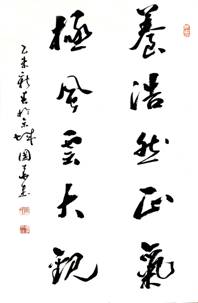 養浩然正氣
極風雲大觀
乙未新春於京城國華書